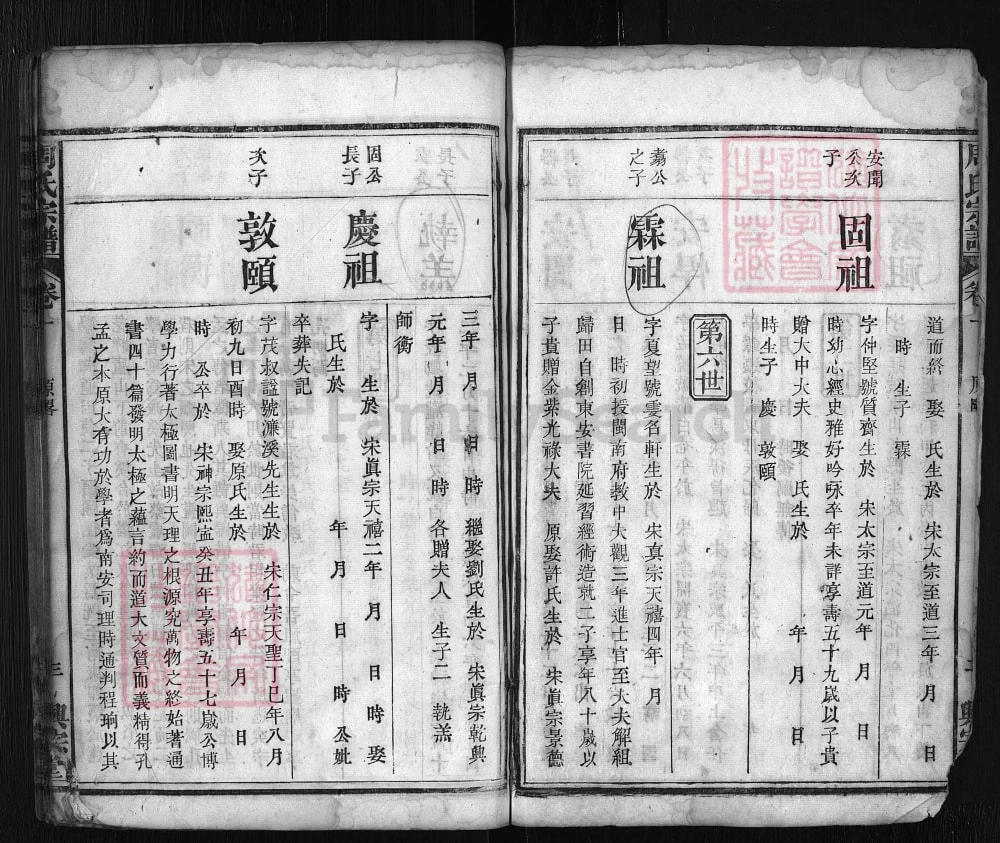 周氏宗譜
卷一
道而終 娶 氏生於 宋太宗至道三年 月 日
時 生子 霖
安閣公次子
固祖
字仲堅號質齊生於 宋太宗至道元年 月 日
時幼心經史雅好吟咏卒年未詳享壽五十九歲以子貴
贈大中大夫 娶 氏生於 年 月 日
時生子 慶 敦頤
第六世
翥公之子
霖祖
字夏望號雯名軒生於 宋真宗天禧四年 月
日 時初授閩南府教中大觀三年進士官至大夫解組
歸田自創東安書院延習經術造就二子享年八十歲以
子貴贈金紫光祿大夫 原娶許氏生於 宋真宗景德
三年 月 日 時 繼娶劉氏生於 宋真宗乾興
元年 月 日 時 各贈夫人 生子二 執羔
師衡
固公長子
慶祖
字 生於 宋真宗天禧二年 月 日 時 娶
氏生於 年 月 日 時 公妣
卒葬失記
次子
敦頤
字茂叔諡號濂溪先生生於 宋仁宗天聖丁巳年八月
初九日酉時 娶原氏生於 年 月 日
時 公卒於 宋神宗熙寍癸丑年享壽五十七歲公博
學力行著太極圖書明天理之根源究萬物之終始著通
書四十篇發明太極之蘊言約而道大文質而義精得孔
孟之本原大有功於學者爲南安司理時通判程珦以其
周氏宗譜
卷一
三
興宗堂
FamilySearch